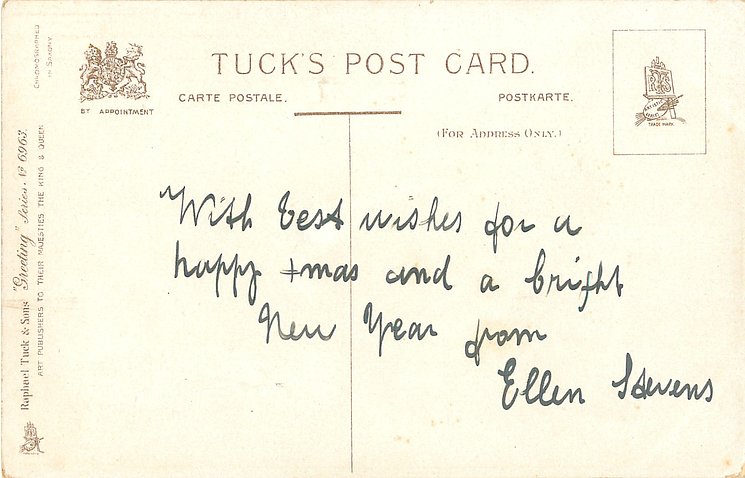 TUCK'S POST CARD.
CARTE POSTALE.
POSTKARTE.
BY APPOINTMENT
(FOR ADDRESS ONLY.)
TRADE MARK
CHROMOGRAPHED
IN SAXONY
Raphael Tuck & Sons "Greeting" Series. No 6963.
ART PUBLISHERS TO THEIR MAJESTIES THE KING & QUEEN
"With best wishes for a
happy +mas and a bright
New Year from
Ellen Stevens